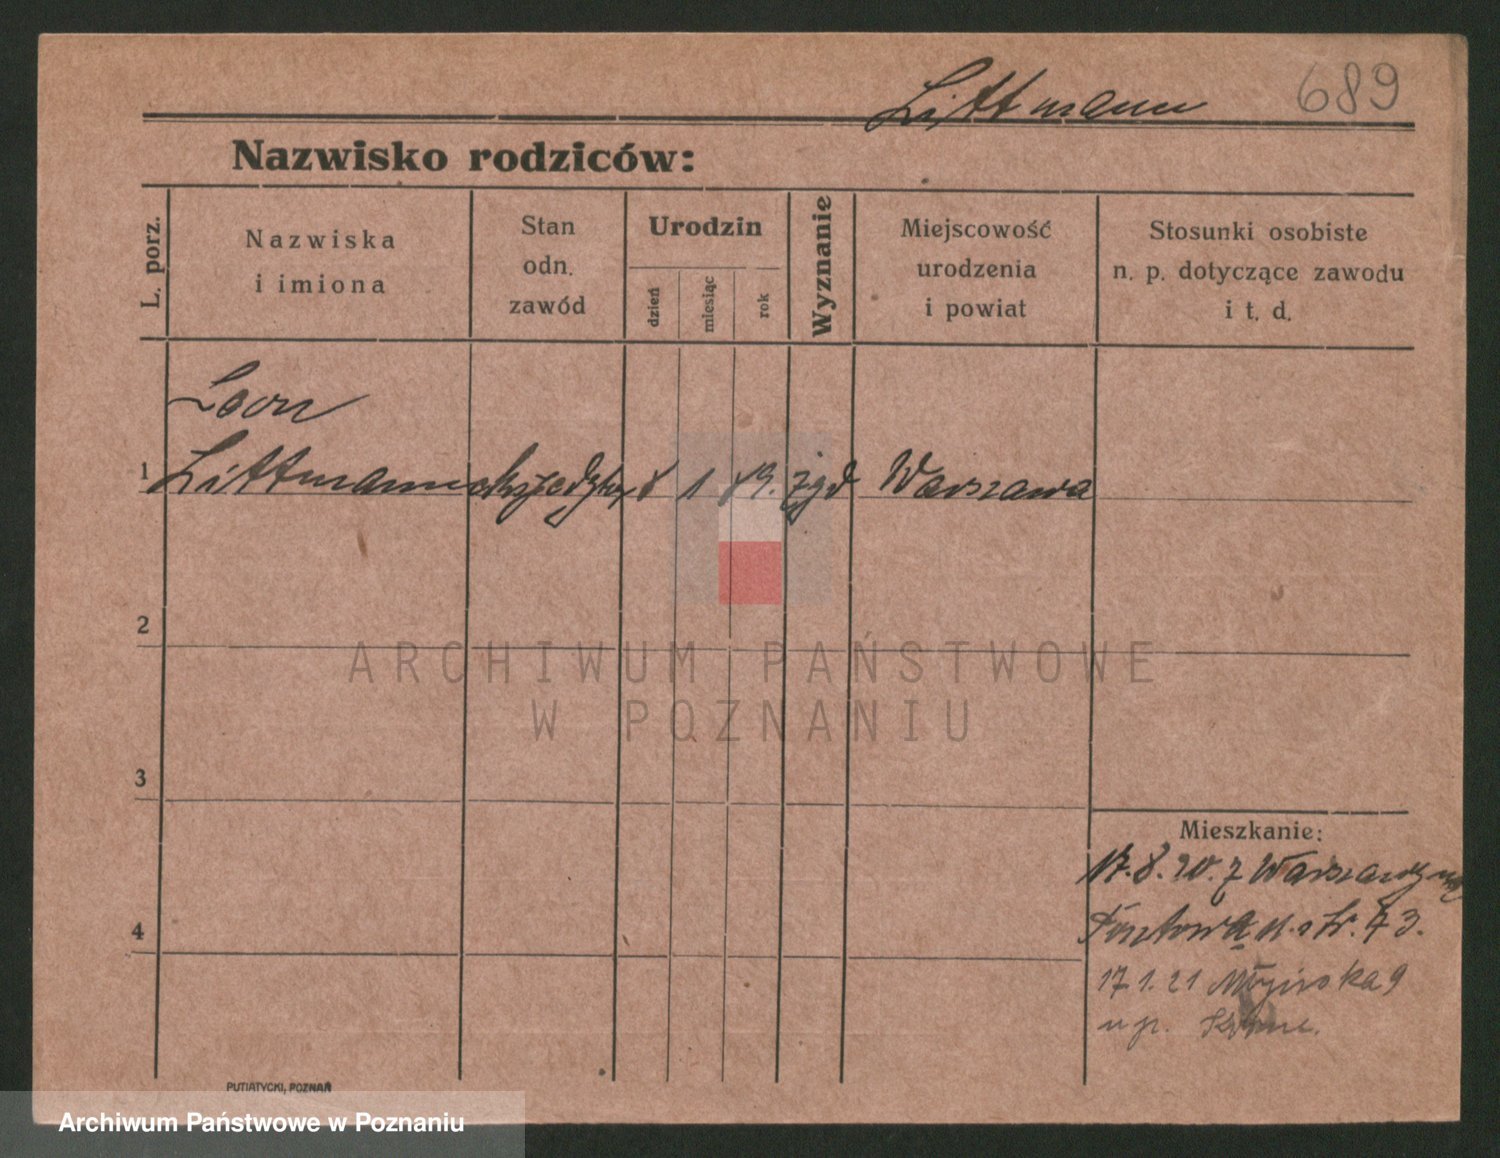 Littmann 689
Nazwisko rodziców:
L. porz.
Nazwiska
i imiona
Stan
odn.
zawód
Urodzin
dzień
miesiąc
rok
Wyznanie
Miejscowość
urodzenia
i powiat
Stosunki osobiste
n. p. dotyczące zawodu
i t. d.
Leon
1 Littmann 8 1 89. żyd Warszawa
2
3
4
Mieszkanie:
17.8.20. z Warszawy
73.
17 1. 21 9
u p.
PUTIATYCKI, POZNAŃ
ARCHIWUM PAŃSTWOWE
W POZNANIU
Archiwum Państwowe w Poznaniu